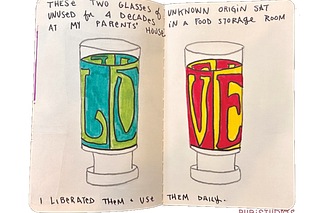 THESE TWO GLASSES of UNKNOWN ORIGIN SAT
UNUSED for 4 DECADES IN A FOOD STORAGE ROOM
AT MY PARENTS' HOUSE
LO VE
I LIBERATED THEM + USE THEM DAILY.